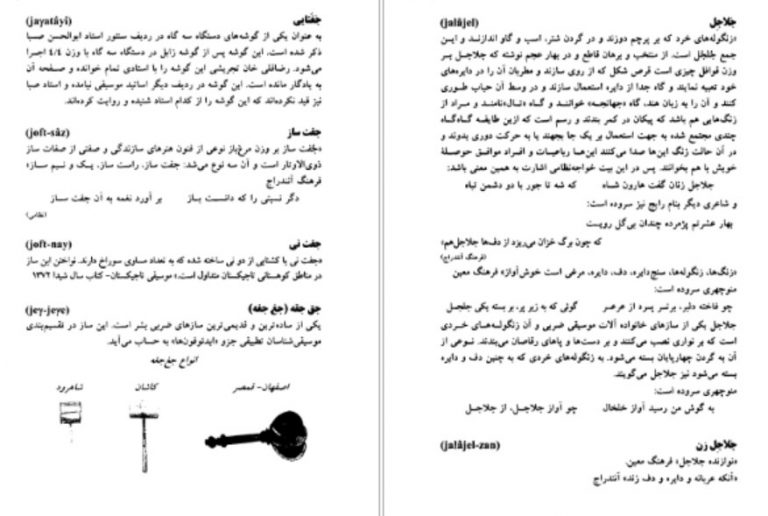 جلاجل (jalâjel)
«زنگوله‌های خرد که بر پرچم دوزند و در گردن شتر، اسب و گاو اندازند و این
جمع جُلجُل است. از منتخب و برهان قاطع و در بهار عجم نوشته که جلاجل بر
وزن قوافل چیزی است قرص شکل که از روی سازند و مطربان آن را در دایره‌های
خود تعبیه نمایند و گاه جدا از دایره استعمال سازند و در وسط آن حباب طوری
کنند و آن را به زبان هند، گاه «جهانجه» خوانند و گاه «تال» نامند و مراد از
زنگ‌هایی هم باشد که پیکان در کمر بندند و رسم است که ازین طایفه گاه‌گاه
چندی مجتمع شده به جهت استعمال بر یک جا بجهند یا به حرکت دوری بدوند و
در آن حالت زنگ این‌ها صدا می‌کنند این‌ها رباعیات و افراد موافق حوصلهٔ
خویش با هم بخوانند. پس در این بیت خواجه‌نظامی اشارت به همین معنی باشد:
جلاجل زنان گفت هارون شاه که شه تا جور با دو دشمن تباه
و شاعری دیگر بنام رایج نیز سروده است:
بهار عشرتم پژمرده چندان بی‌گل رویست
که چون برگ خزان می‌ریزد از دف‌ها جلاجل‌هم»
(فرهنگ آنندراج)
«زنگ‌ها، زنگوله‌ها، سنج دایره، دف، دایره، مرغی است خوش‌آواز» فرهنگ معین
منوچهری سروده است:
چو فاخته دلبر، برتسر پسرد از عرعر گوئی که به زیر پر، بر بسته یکی جلجل
جلاجل یکی از سازهای خانواده آلات موسیقی ضربی و آن زنگوله‌های خردی
است که بر نواری نصب می‌کنند و بر دست‌ها و پاهای رقاصان می‌بندند. نوعی از
آن به گردن چهارپایان بسته می‌شود. به زنگوله‌های خردی که به چنین دف و دایره
بسته می‌شود نیز جلاجل می‌گویند.
منوچهری سروده است:
به گوش من رسید آواز خلخال چو آواز جلاجل، از جلاجل
جلاجل زن (jalâjel-zan)
«نوازنده جلاجل» فرهنگ معین.
«آنکه عربانه و دایره و دف زند» آنندراج
جغتایی (jaγatâyî)
به عنوان یکی از گوشه‌های دستگاه سه گاه در ردیف سنتور استاد ابوالحسن صبا
ذکر شده است. این گوشه پس از گوشه زابل در دستگاه سه گاه با وزن ۴/۴ اجرا
می‌شود. رضاقلی خان تجریشی این گوشه را با استادی تمام خوانده و صفحه آن
به یادگار مانده است. این گوشه در ردیف دیگر اساتید موسیقی نیامده و استاد صبا
نیز قید نکرده‌اند که این گوشه را از کدام استاد شنیده و روایت کرده‌اند.
جفت ساز (joft-sâz)
«جُفت ساز بر وزن مرغ‌باز نوعی از فنون هنرهای سازندگی و صفتی از صفات ساز
ذوی‌الاوتار است و آن سه نوع می‌شد: جفت ساز، راست ساز، یک و نیم ساز»
فرهنگ آنندراج
دگر نسبتی را که دانست باز بر آورد نغمه به آن جفت ساز
(نظامی)
جفت نی (joft-nay)
«جفت نی یا کشتایی از دو نی ساخته شده که به تعداد مساوی سوراخ دارند. نواختن این ساز
در مناطق کوهستانی تاجیکستان متداول است.» موسیقی تاجیکستان- کتاب سال شیدا ۱۳۷۲
جق جقه (جغ جغه) (jeγ-jeγe)
یکی از ساده‌ترین و قدیمی‌ترین سازهای ضربی بشر است. این ساز در تقسیم‌بندی
موسیقی‌شناسان تطبیقی جزو «ایدئوفون‌ها» به حساب می‌آید.
انواع جغ‌جغه
اصفهان- قمصر کاشان شاهرود